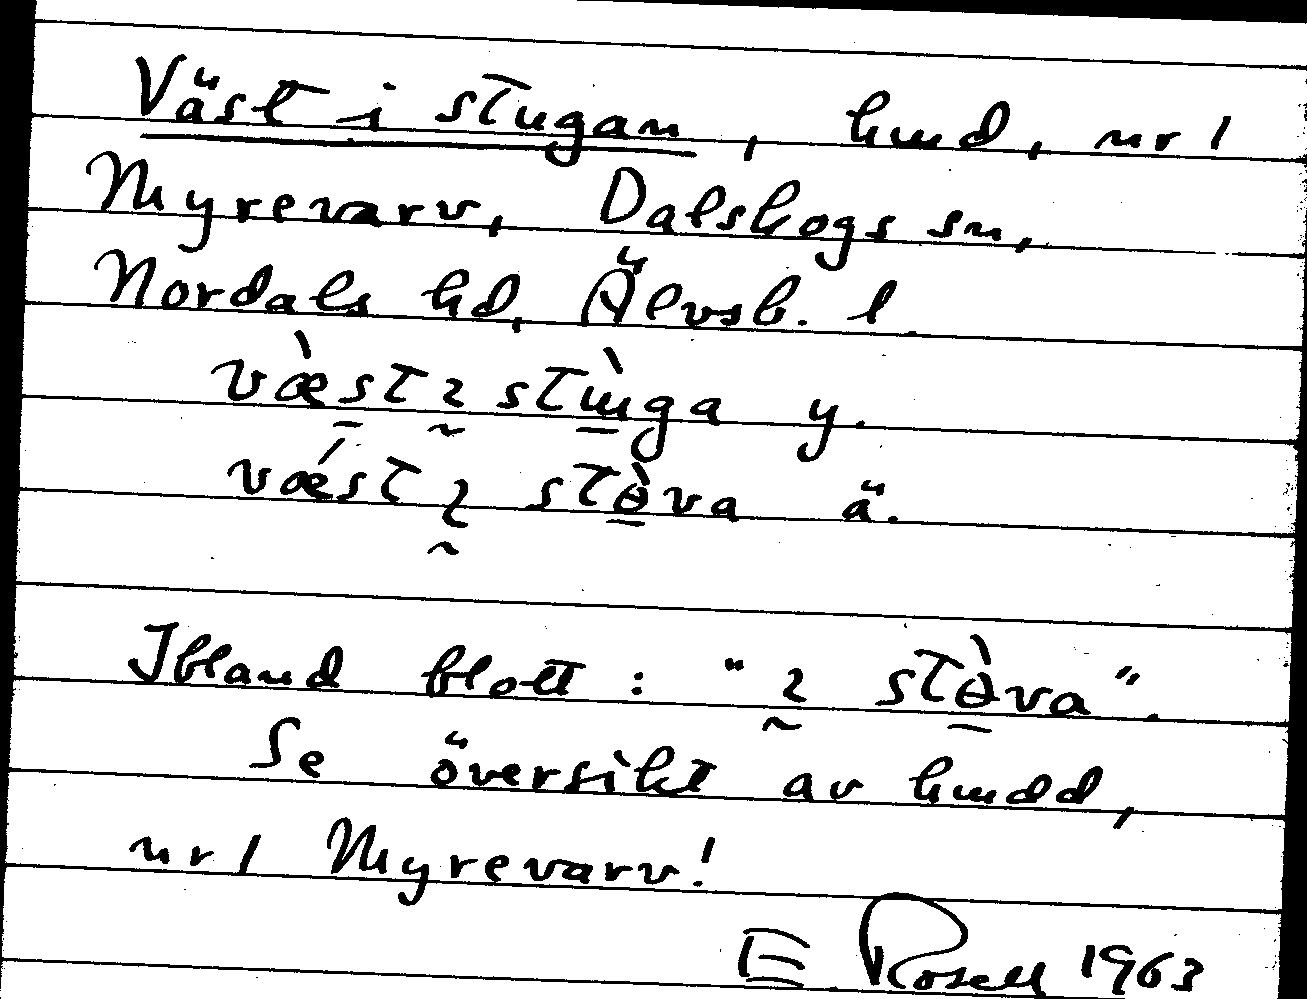 Väst i stugan, hmd, nr 1
Myrevarv, Dalskogs sn,
Nordals hd, Älvsb. l.
væ̀st ı stùga y.
vǽst ı stɵ̀va ä.
Ibland blott: "ı stɵ̀va".
Se översikt av hmdd,
nr 1 Myrevarv!
E Rosell 1963